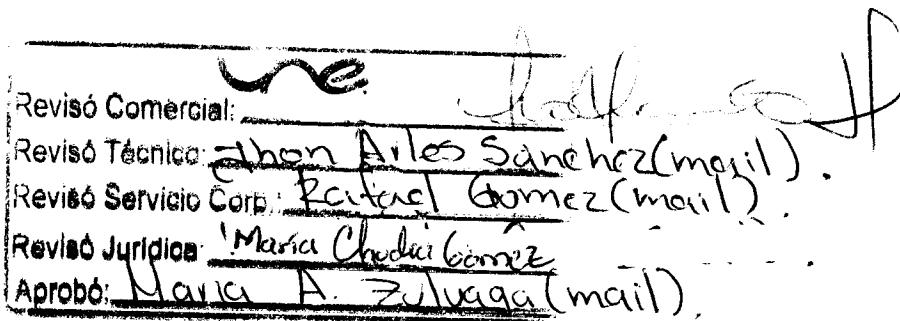 une
Revisó Comercial:
Revisó Técnico: Jhon Arles Sánchez (mail).
Revisó Servicio Corp: Rafael Gómez (mail).
Revisó Jurídica: María Gómez
Aprobó: María A. Zuluaga (mail).